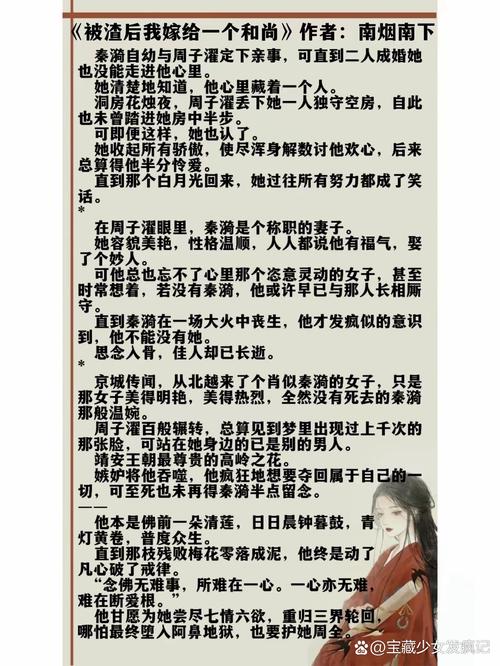 《被渣后我嫁给一个和尚》作者：南烟南下
秦漪自幼与周子濯定下亲事，可直到二人成婚她
也没能走进他心里。
她清楚地知道，他心里藏着一个人。
洞房花烛夜，周子濯丢下她一人独守空房，自此
也未曾踏进她房中半步。
可即便这样，她也认了。
她收起所有骄傲，使尽浑身解数讨他欢心，后来
总算得他半分怜爱。
直到那个白月光回来，她过往所有努力都成了笑
话。
*
在周子濯眼里，秦漪是个称职的妻子。
她容貌美艳，性格温顺，人人都说他有福气，娶
了个妙人。
可他总也忘不了心里那个恣意灵动的女子，甚至
时常想着，若没有秦漪，他或许早已与那人长相厮
守。
直到秦漪在一场大火中丧生，他才发疯似的意识
到，他不能没有她。
思念入骨，佳人却已长逝。
*
京城传闻，从北越来了个肖似秦漪的女子，只是
那女子美得明艳，美得热烈，全然没有死去的秦漪
那般温婉。
周子濯百般辗转，总算见到梦里出现过上千次的
那张脸，可站在她身边的已是别的男人。
靖安王朝最尊贵的高岭之花。
嫉妒将他吞噬，他疯狂地想要夺回属于自己的一
切，可至死也未再得秦漪半点留念。
——
他本是佛前一朵清莲，日日晨钟暮鼓，青
灯黄卷，普度众生。
直到那枝残败梅花零落成泥，他终是动了
凡心破了戒律。
“念佛无难事，所难在一心。一心亦无难，
难在断爱根。”
他甘愿为她尝尽七情六欲，重归三界轮回，
哪怕最终堕入阿鼻地狱，也要护她周全。
宝藏少女发疯记